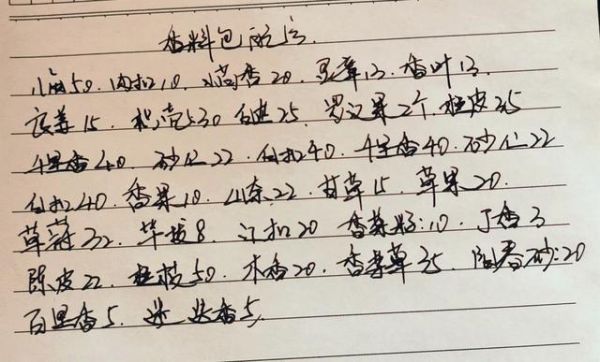 香料包配方.
八角50. 肉扣10. 小茴香20. 毕章13. 香叶13.
良姜15. 枳壳30 白芷25. 罗汉果2个. 桂皮35
千里香40. 砂仁22. 白扣40. 千里香40. 砂仁22
白扣40. 香果10. 山奈22. 甘草15. 草果20.
草蔻32. 毕拨8. 红扣20 香菜籽:10. 丁香3
陈皮22. 桂枝50. 木香20. 香茅草35. 阳春砂:20
百里香5. 迷迭香5,